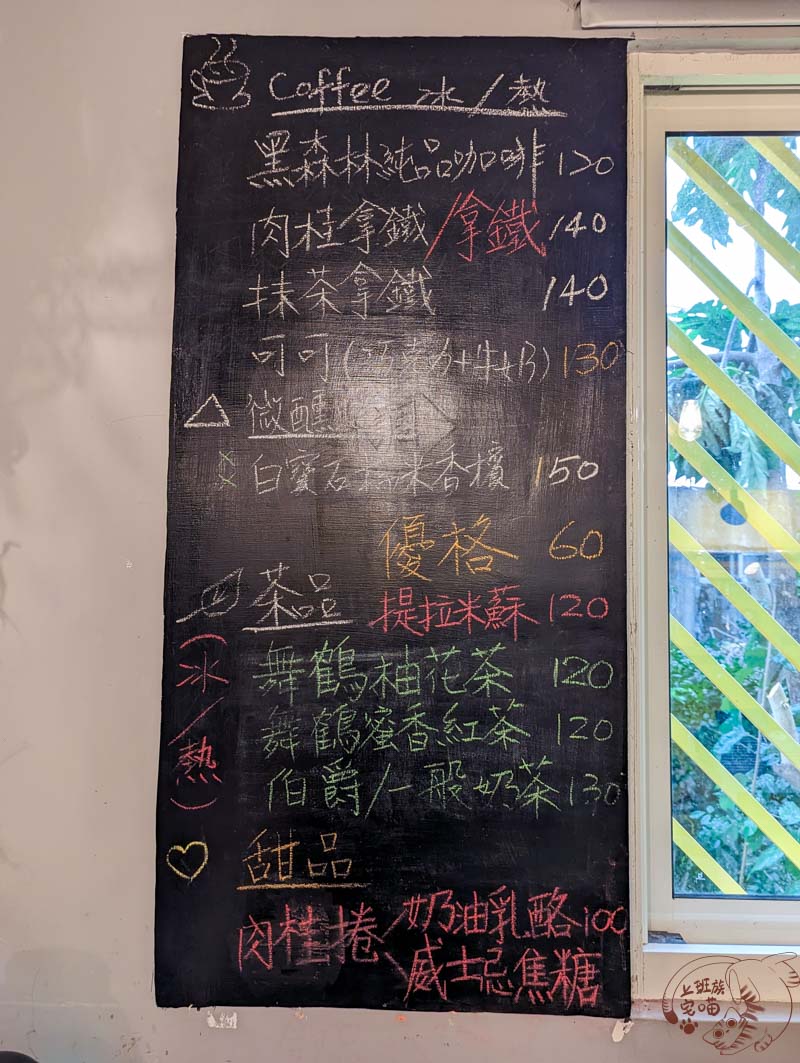 Coffee 冰/熱
黑森林純品咖啡 120
肉桂拿鐵/拿鐵 140
抹茶拿鐵 140
可可(巧克力+牛奶) 130
微醺
白寶石 香檳 150
優格 60
茶品 提拉米蘇 120
(冰/熱)
舞鶴柚花茶 120
舞鶴蜜香紅茶 120
伯爵/一般奶茶 130
甜品
肉桂捲 奶油乳酪 100
威士忌焦糖
上班族
宅喵